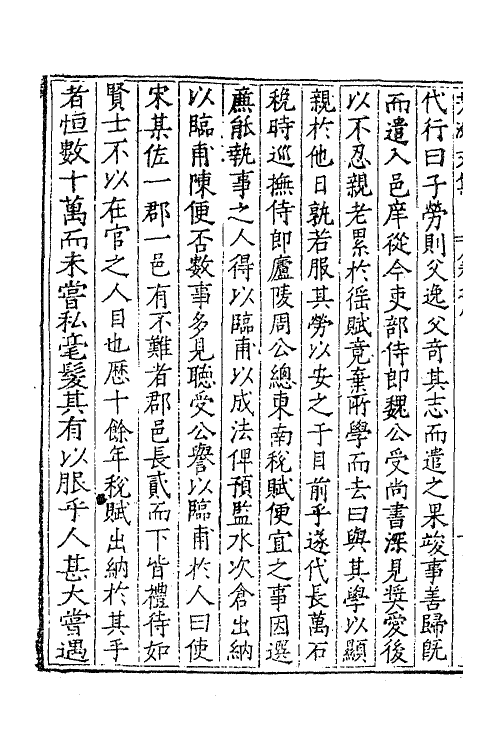 代行曰子勞則父逸父奇其志而遣之果竣事善歸既
而遣入邑庠從今吏部侍郎魏公受尚書深見奨愛後
以不忍親老累於徭賦竟棄所學而去曰與其學以顯
親於他日孰若服其勞以安之于目前乎遂代長萬石
稅時巡撫侍郎廬陵周公總東南稅賦便宜之事因選
廉能執事之人得以臨甫以成法俾預監水次倉出納
以臨甫陳便否數事多見聽受公譽以臨甫於人曰使
宋某佐一郡一邑有不難者郡邑長貳而下皆禮待如
賢士不以在官之人目也歷十餘年稅賦出納於其手
者恒數十萬而未嘗私毫髮其有以服乎人甚大嘗遇